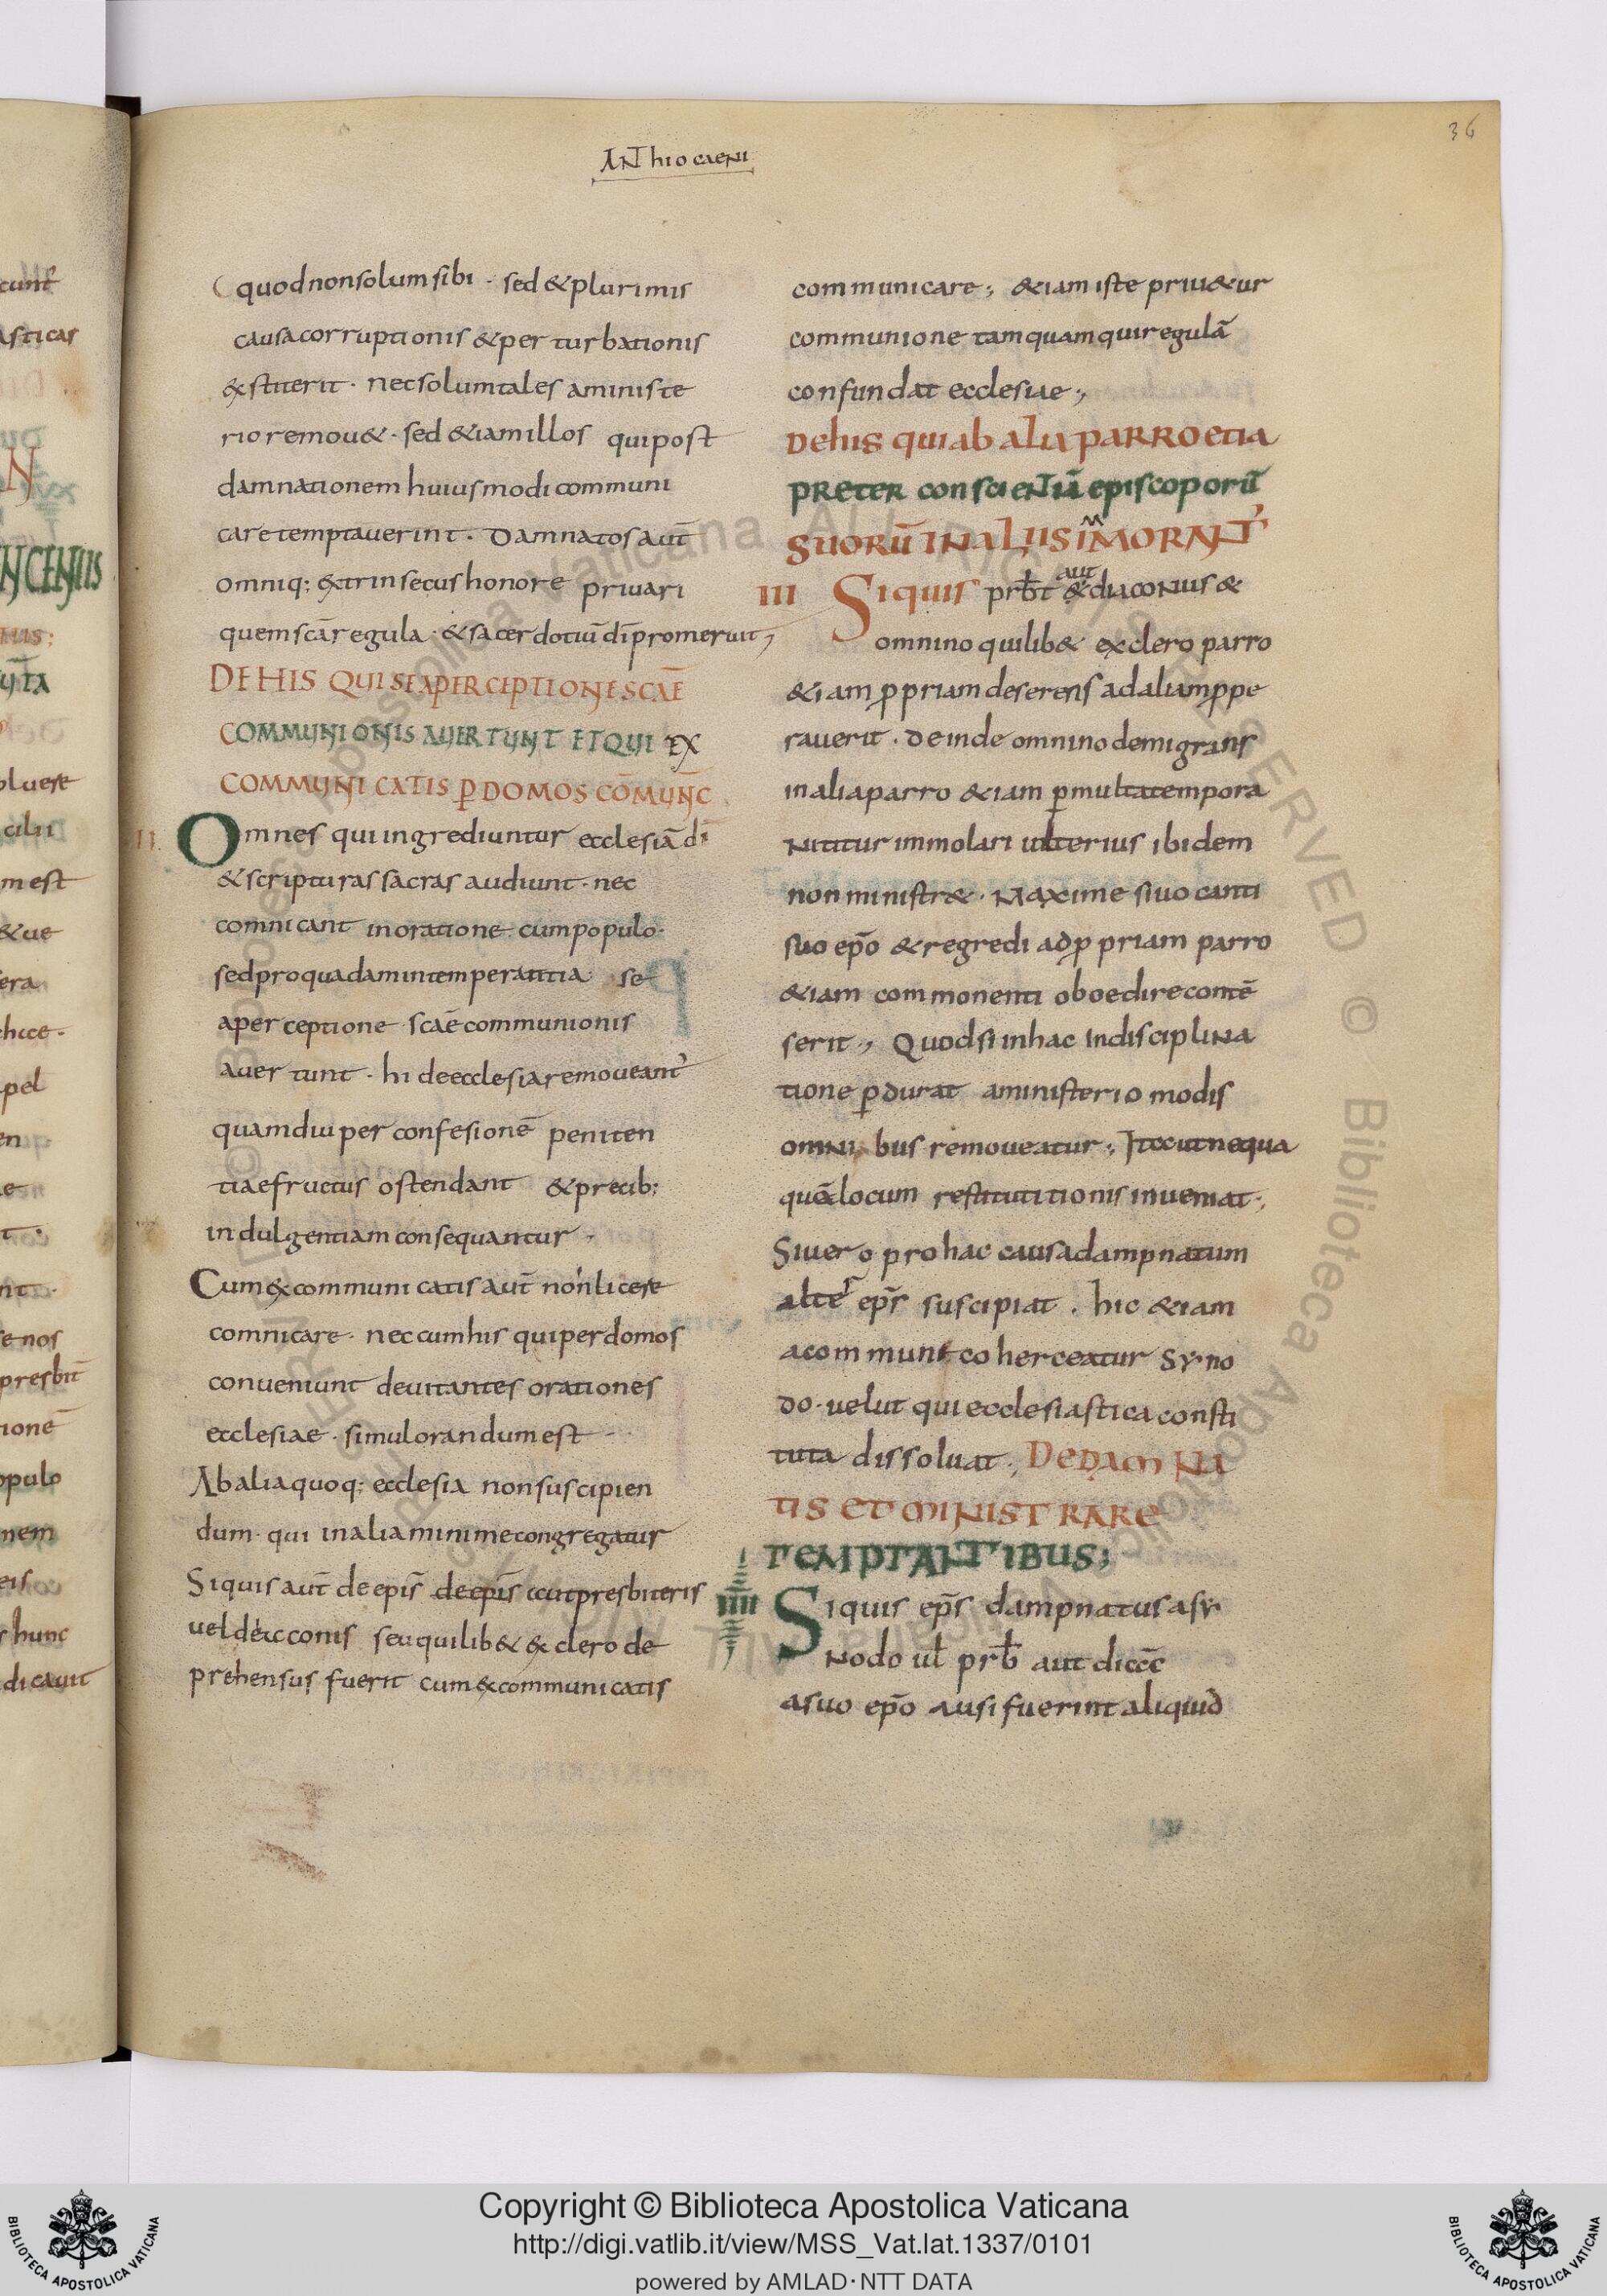 36
ANThiocaeni
quod non solum sibi · sed & plurimis
causa corruptionis & perturbationis
exstiterit · nec solum tales aministe
rio remou& · sed &iam illos qui post
damnationem huiusmodi communi
care temptaverint · Damnatos aut̄
omniq: extrinsecus honore privari
quem sc̄a regula · & sacerdotiū dī promeruit,
DE HIS QUI SE A PERCEPTIONE SCAĒ
COMMUNIONIS AVERTUNT ET QUI EX
COMMUNICATIS P̱ DOMOS COM̄UNC̄
II. Omnes qui ingrediuntur ecclesiā dī
& scripturas sacras audiunt · nec
comnicant in oratione cum populo·
sed pro quadam intemperantia se
a perceptione scaē communionis
avertunt · hi de ecclesia removeant᾽
quamdiu per confesionē peniten
tiae fructus ostendant & precib:
indulgentiam consequantur ·
Cum excommunicatis aut̄ non licere
comnicare · nec cum his qui per domos
conveniunt devitantes orationes
ecclesiae · simul orandum est
Ab alia quoq: ecclesia non suscipien
dum · qui in alia minime congregatur
Si quis aut̄ de epīs de epīs aut presbiteris
vel deaconis seu quilib& ex clero de
prehensus fuerit cum excommunicatis
communicare; &iam iste priu&ur
communione tamquam qui regulā
confundat ecclesiae;
De his qui ab alia parroetia
preter conscientiā episcoporū
suorū in aliis immorant᾽
III Si quis prb̄t aut & diaconus &
omnino quilib& ex clero parro
&iam p̱priam deserens ad aliam p̱pe
raverit · Deinde omnino demigrans
in alia parro &iam p̱ multa tempora
nititur immolari ulterius ibidem
non ministr& · Maxime si vocanti
suo ep̄o & regredi ad p̱priam parro
&iam commonenti oboedire contē
serit, Quod si in hac indisciplina
tione p̱durat a ministerio modis
omnibus removeatur; Ita ut nequa
quā locum restitutitionis inveniat;
Si vero pro hac causa dampnatum
alter ep̄s suscipiat · hic &iam
a commune coherceatur syno
do · velut qui ecclesiastica consti
tuta dissolvat; DE DAMNA
TIS ET MINISTRARE
TEMPTANTIBUS;
IIII Si quis ep̄s dampnatus a sy
nodo vl̄ prb̄ aut diac̄
a suo ep̄o ausi fuerint aliquid
Copyright © Biblioteca Apostolica Vaticana
http://digi.vatlib.it/view/MSS_Vat.lat.1337/0101
powered by AMLAD·NTT DATA
BIBLIOTECA APOSTOLICA VATICANA
BIBLIOTECA APOSTOLICA VATICANA